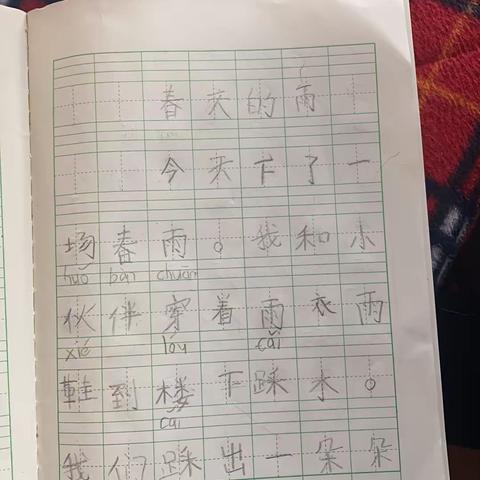 春天的雨
今天下了一
场春雨。我和小
huǒ bàn chuān
伙伴穿着雨衣雨
xié lóu cǎi
鞋到楼下踩水。
cǎi
我们踩出一朵朵